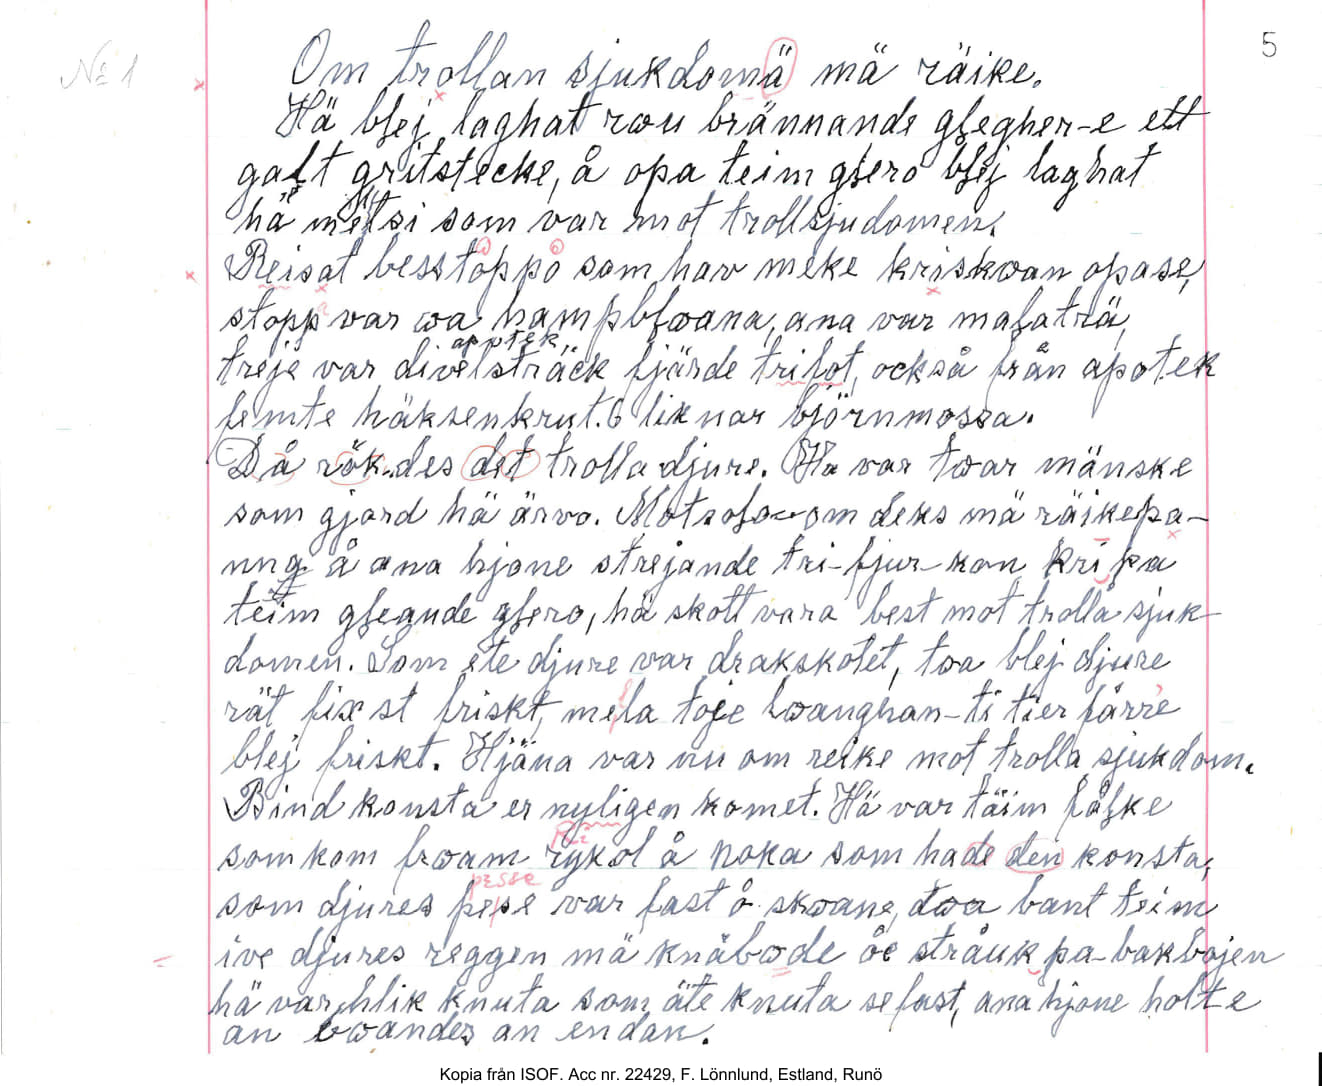 № 1
5
Om trollan sjukdomä mä räike.
Hä blej laghat rou brännande glegher-e ett
galt gritstecke, å opa teim glero blej laghat
hä metsi som var mot trollsjudomen.
Reisat besstoppo som hav meke kriskoan opase,
stopp var oa hampbloana, ana var malaträ,
apptek
treje var divelsträck fjärde trifot, också från apotek
femte häksenkrut. 6 lik nar björnmossa.
Då rök.des det trolla djure. Ha var twar mänske
som gjord hä ärvo. Motsols om deks mä räikepa-
nng å ana hjone strejande tri-fjur-kon kripa
teim gleande glero, hä skott vara best mot trollå sjuk-
domen. Som ete djure var drakskotet, toa blej djure
rät fixst friskt, mela toje loanghan-ti tier fårre
blej friskt. Hjäna var nu om reike mot trolla sjukdom.
Bind konsta er nyligen komet. Hä var täim folske
som kom froam rykol å noka som hade den konsta,
pesse
som djures pepe var fast å skoane, twa bant teim
ive djures reggen mä knäbode åe stråuk pa-bakbojen
hä var hlik knuta som äte knuta se fast, ana hjone holte
an boandes an endan.
Kopia från ISOF. Acc nr. 22429, F. Lönnlund, Estland, Runö